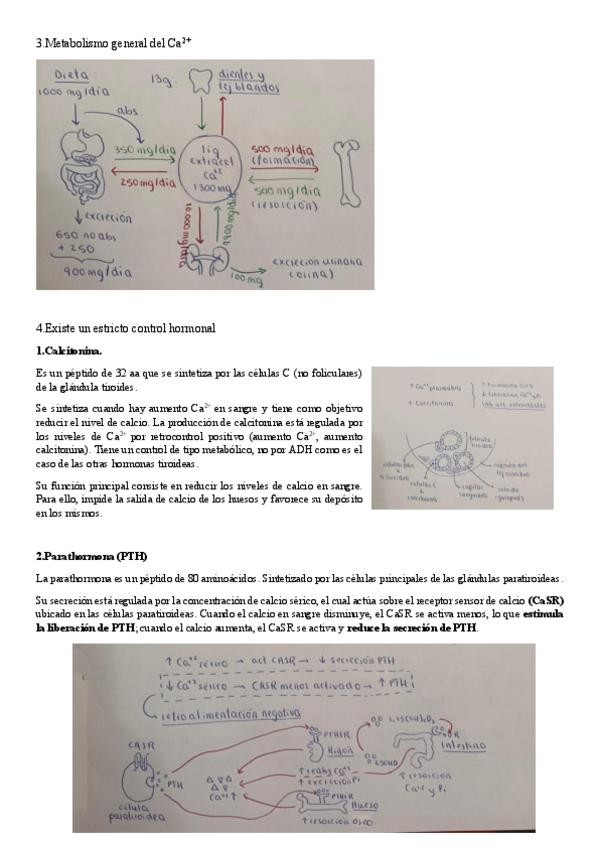 3.Metabolismo general del Ca²⁺
Dieta:
1000 mg/día
abs.
13g.
dientes y
tej blandos
350 mg/día
250 mg/día
liq
extracel
Ca⁺²
1300mg
500 mg/día
(formación)
500 mg/día
(resorción)
excreción
650 no abs
+ 250
900 mg/día
10.000 mg/día
9900 mg/día
100mg
excreción urinaria
(orina)
4.Existe un estricto control hormonal
1.Calcitonina.
Es un péptido de 32 aa que se sintetiza por las células C (no foliculares)
de la glándula tiroides.
Se sintetiza cuando hay aumento Ca²⁺ en sangre y tiene como objetivo
reducir el nivel de calcio. La producción de calcitonina está regulada por
los niveles de Ca²⁺ por retrocontrol positivo (aumento Ca²⁺, aumento
calcitonina). Tiene un control de tipo metabólico, no por ADH como es el
caso de las otras hormonas tiroideas.
Su función principal consiste en reducir los niveles de calcio en sangre.
Para ello, impide la salida de calcio de los huesos y favorece su depósito
en los mismos.
↑ Calcitonina
células C
calcitonina
2.Parathormona (PTH)
La parathormona es un péptido de 80 aminoácidos. Sintetizado por las células principales de las glándulas paratiroideas.
Su secreción está regulada por la concentración de calcio sérico, el cual actúa sobre el receptor sensor de calcio (CaSR)
ubicado en las células paratiroideas. Cuando el calcio en sangre disminuye, el CaSR se activa menos, lo que estimula
la liberación de PTH; cuando el calcio aumenta, el CaSR se activa y reduce la secreción de PTH.
↑ Ca⁺² sérico → act CASR → ↓ secreción PTH
↓ Ca⁺² sérico → CASR menos activado → ↑ PTH
retroalimentación negativa
CASR
PTH
célula
paratiroidea
Ca⁺² ↑
PTH1R
Riñón
↑ reabs Ca⁺²
↑ excreción Pi
PTH1R
Hueso
↑ resorción ósea
Intestino
Ca⁺² y Pi